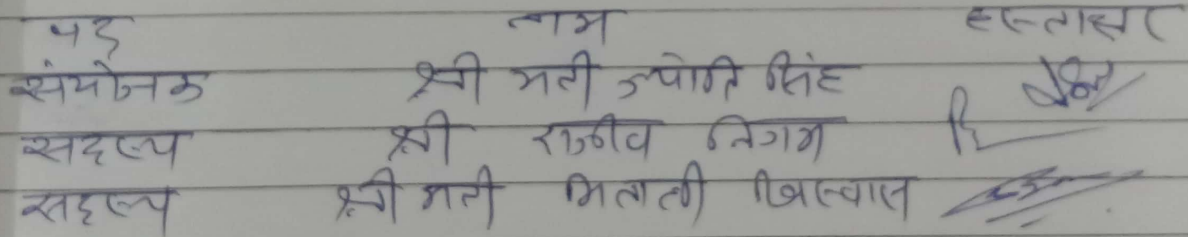 पद नाम हस्ताक्षर
संयोजक श्री मती ज्योति सिंह
सदस्य श्री राजीव निगम
सदस्य श्री मती मिताली विस्वास